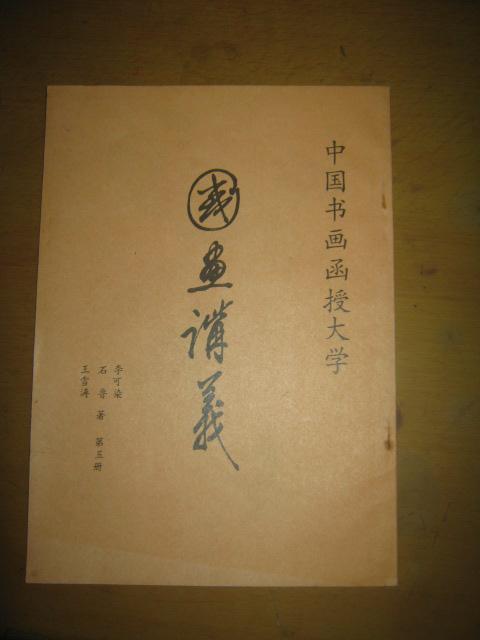 中国书画函授大学
國畫講義
李可染
石鲁 著 第五册
王雪涛